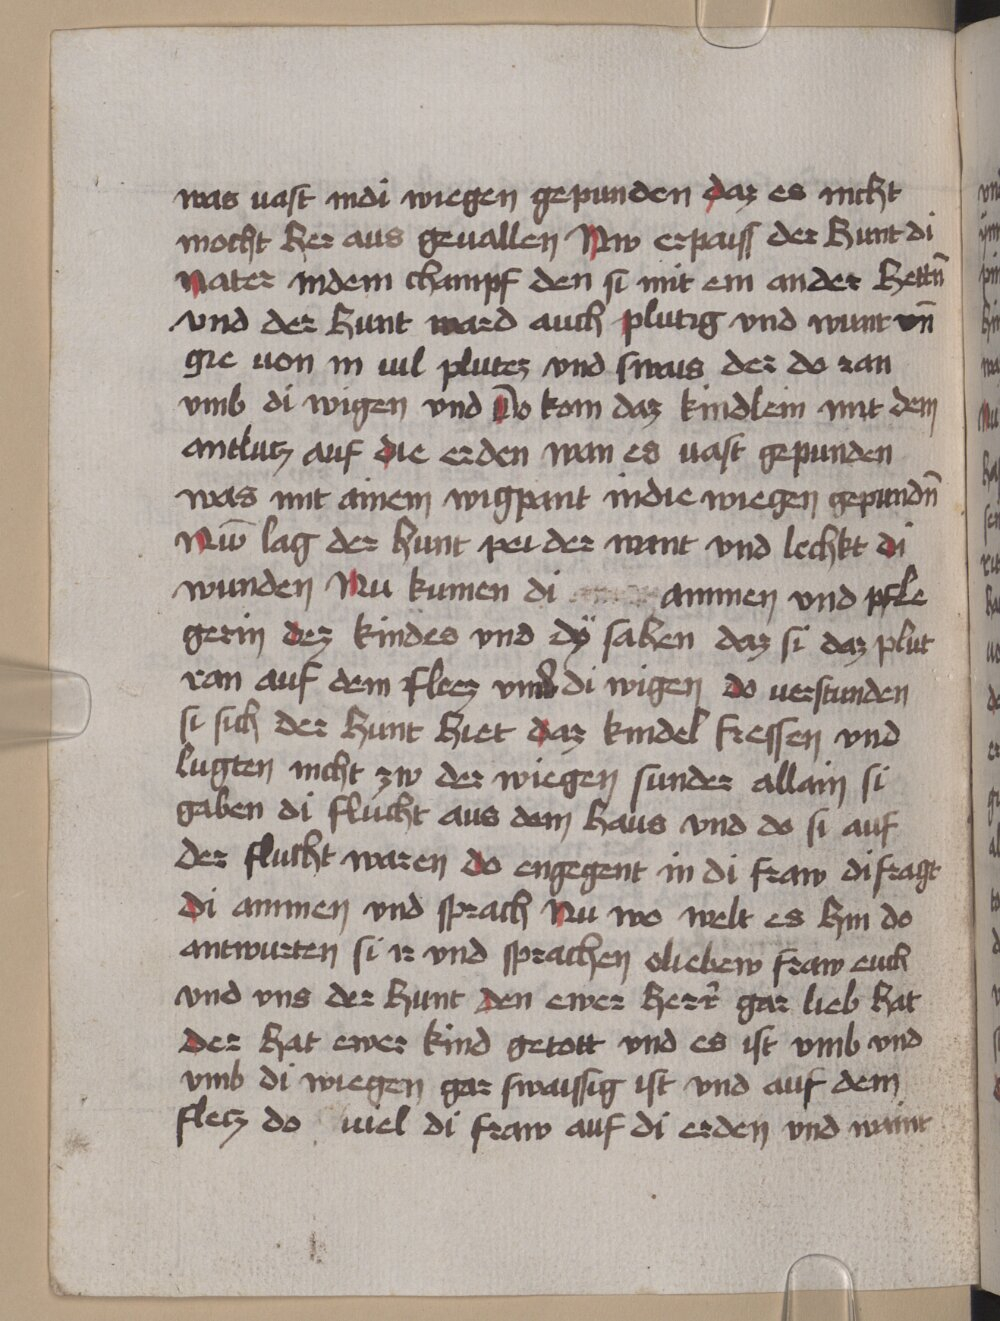 was uast indi wiegen gepunden daz es nicht
mocht her aus geuallen Nw erpaiss der hunt di
Nater indem champf den si mit ein ander hettn̄
vnd der hunt ward auch plutig vnd wunt vn̄
gie uon in uil plutez vnd swais der do ran
vmb di wigen vnd Do kom daz kindlein mit dem
antlutz auf die erden wan es uast gepunden
was mit ainem wigpant indie wiegen gepundn̄
Nw̄ lag der hunt pei der want vnd lechkt di
wunden Nu kumen di ammen vnd pfle
gerin dez kindes vnd dÿ sahen daz si daz plut
ran auf dem flecz vmb di wigen do uerstunden
si sich der hunt hiet daz kindel fressen vnd
lugten nicht zw der wiegen sunder allain si
gaben di flucht aus dem haus vnd do si auf
der flucht waren do engegent in di fraw di fragt
di ammen vnd sprach Nu wo welt es hin do
antwurten si ir vnd sprachen oliebew fraw euch
vnd vns der hunt den ewer herr̄ gar lieb hat
der hat ewer kind getott vnd es ist vmb vnd
vmb di wiegen gar swaissig ist vnd auf dem
flecz do uiel di fraw auf di erden vnd waint